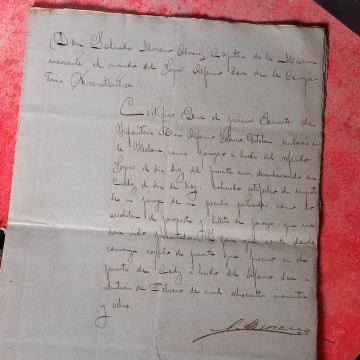 Don Salvador Moreno Alvarez, Capitan de la Marina
mercante al mando del Vapor Alfonso doce de la Compa-
ñia Trasatlantica
Certifico: Que el primer Teniente de
Infanteria Don Alfonso embarcó en
la Habana como pasagero á bordo del referido
Vapor el dia diez del presente mes, desembarcando en
Cadiz el dia de hoy; habiendo satisfecho el importe
de su pasage de su peculio particular, como lo
acreditan el pasaporte y billete de pasage que me
han sido presentados. Y para que conste donde
convenga, expido el presente que firmo en el
puerto de Cadiz á bordo del Alfonso doce á
veintiseis de Febrero de mil ochocientos noventa
y ocho.
S. Moreno